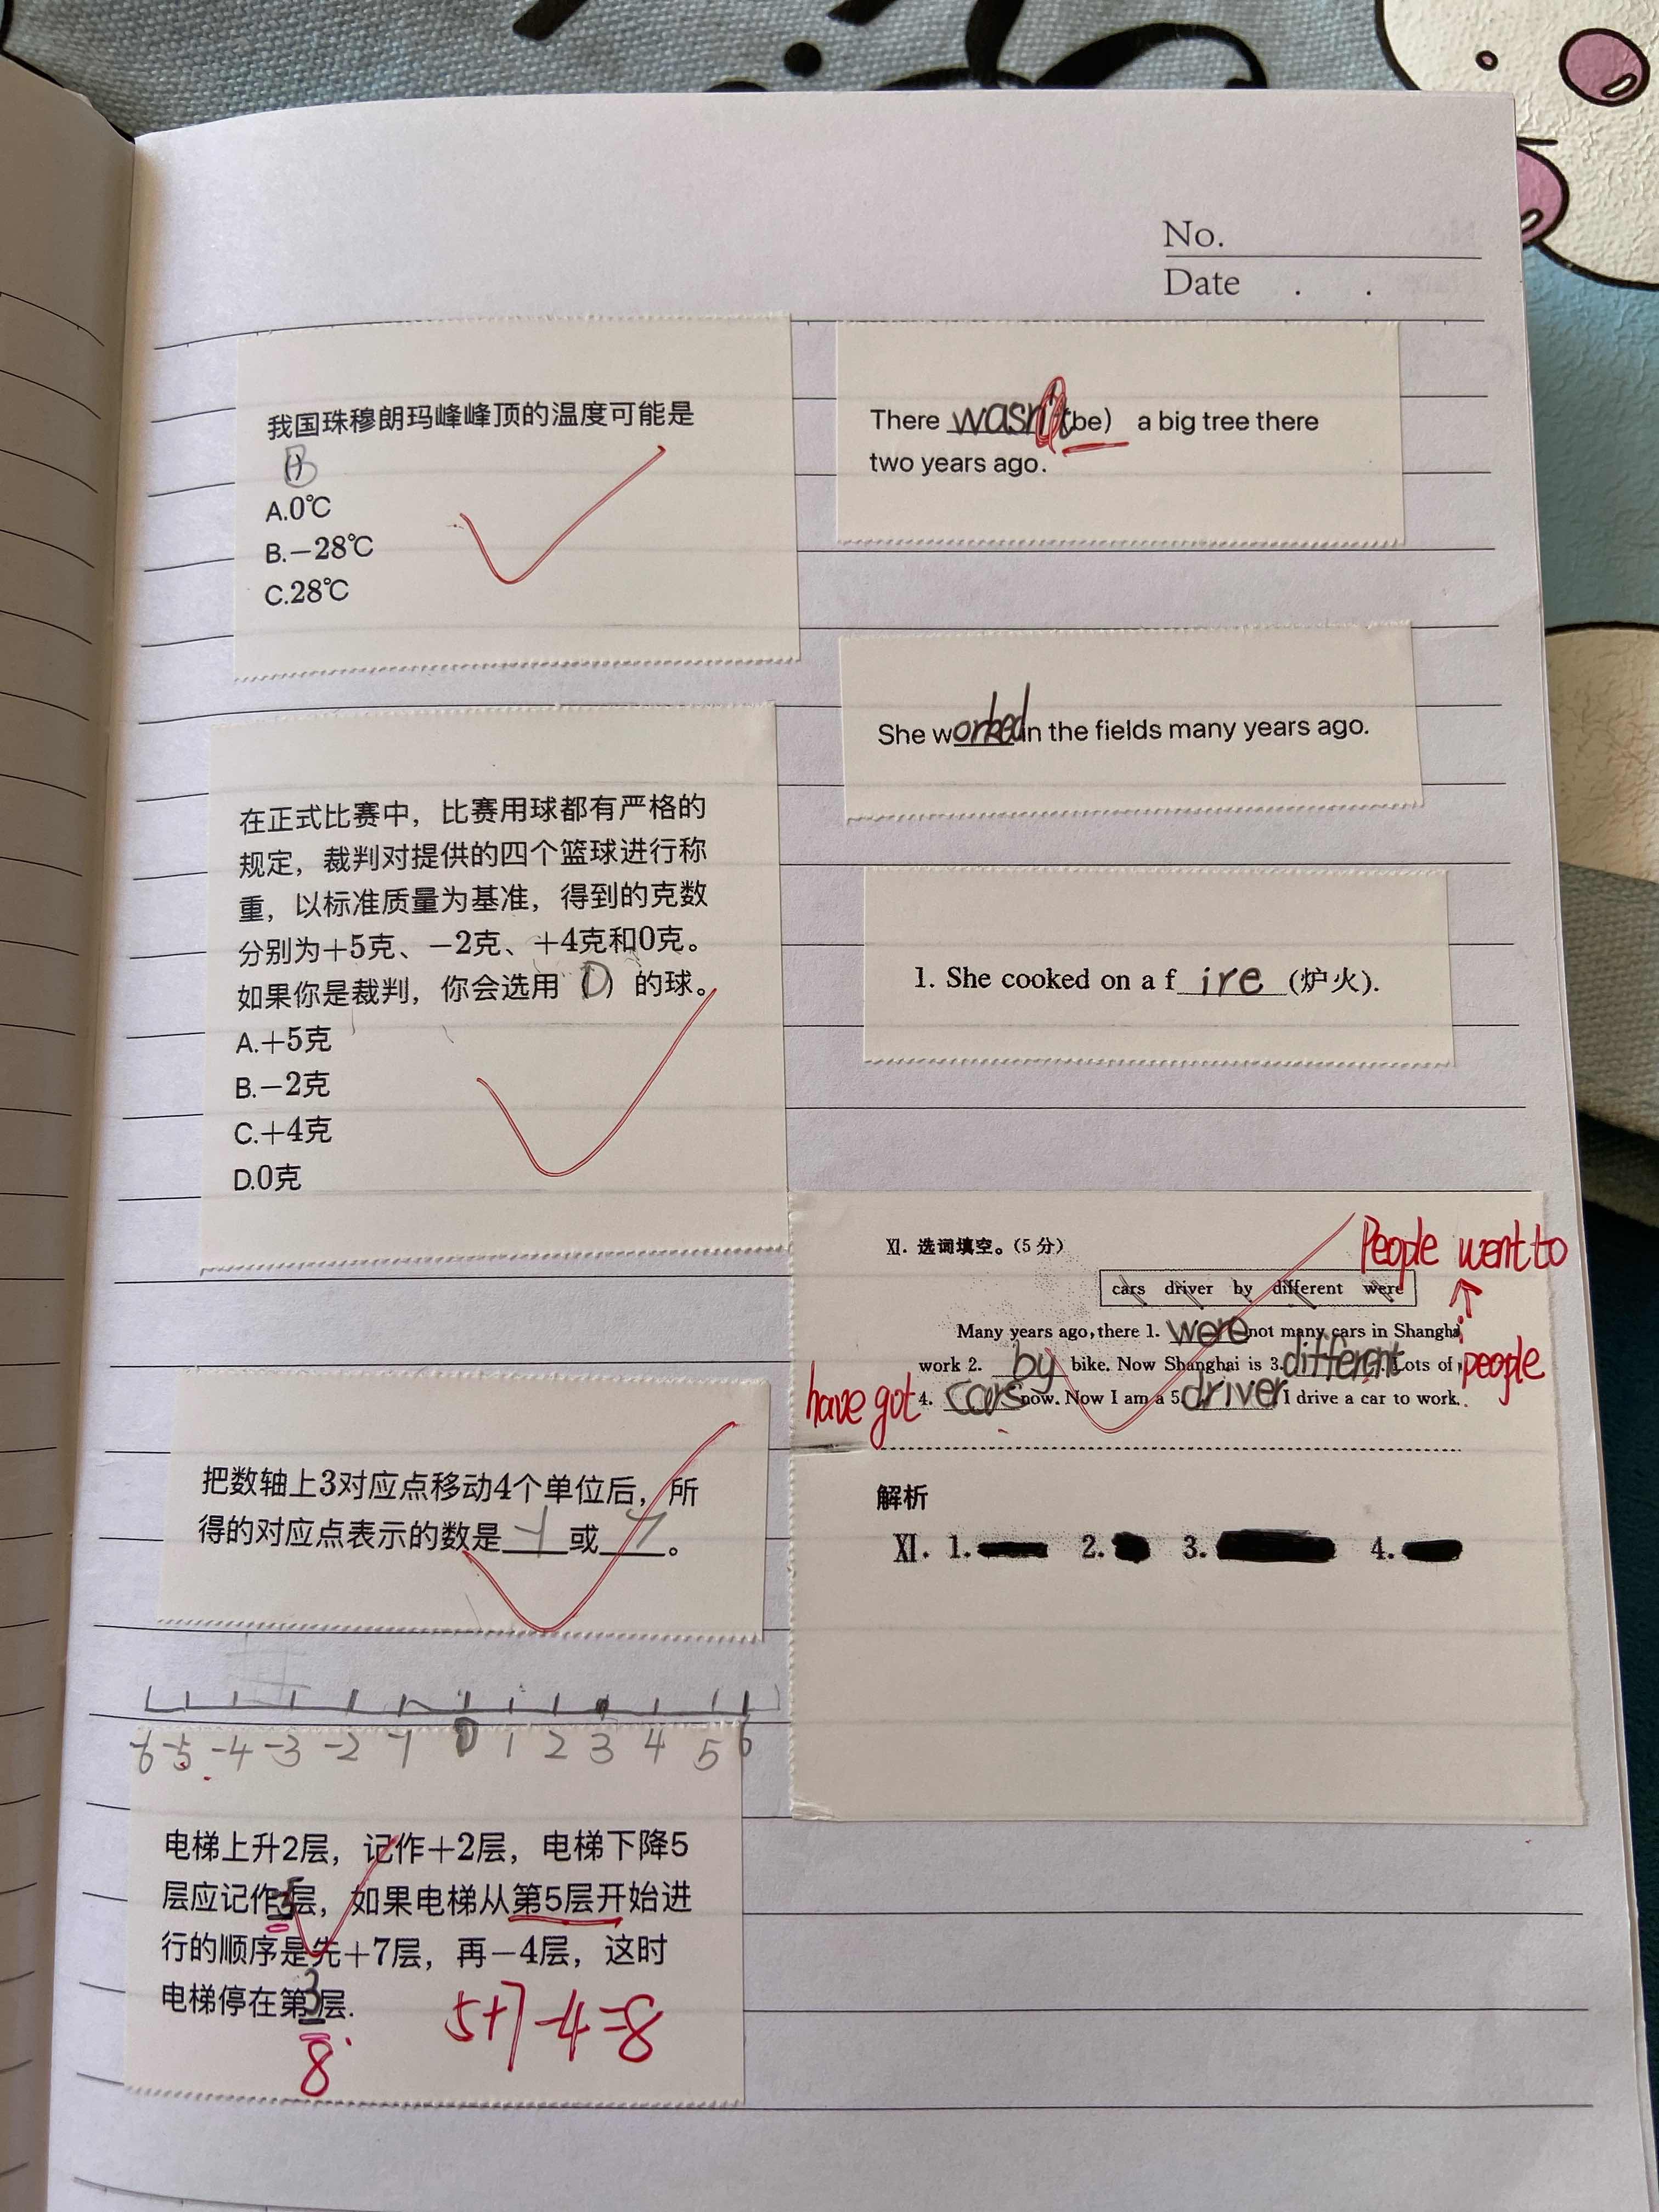 No.
Date . .
我国珠穆朗玛峰峰顶的温度可能是
(B)
A.0℃
B.－28℃
C.28℃
在正式比赛中，比赛用球都有严格的
规定，裁判对提供的四个篮球进行称
重，以标准质量为基准，得到的克数
分别为+5克、－2克、+4克和0克。
如果你是裁判，你会选用（D）的球。
A.+5克
B.－2克
C.+4克
D.0克
把数轴上3对应点移动4个单位后，所
得的对应点表示的数是 -1 或 7 。
-6 -5 -4 -3 -2 -1 0 1 2 3 4 5 6
电梯上升2层，记作+2层，电梯下降5
层应记作-5层，如果电梯从第5层开始进
行的顺序是先+7层，再－4层，这时
电梯停在第3层.
8
5+7-4=8
There wasn't (be) a big tree there
two years ago.
She worked in the fields many years ago.
1. She cooked on a f ire (炉火).
XI. 选词填空。(5分)
People went to
cars driver by different were
Many years ago, there 1. were not many cars in Shangha
work 2. by bike. Now Shanghai is 3. different. Lots of people
have got 4. cars now. Now I am a 5. driver. I drive a car to work.
解析
XI. 1. 2. 3. 4.